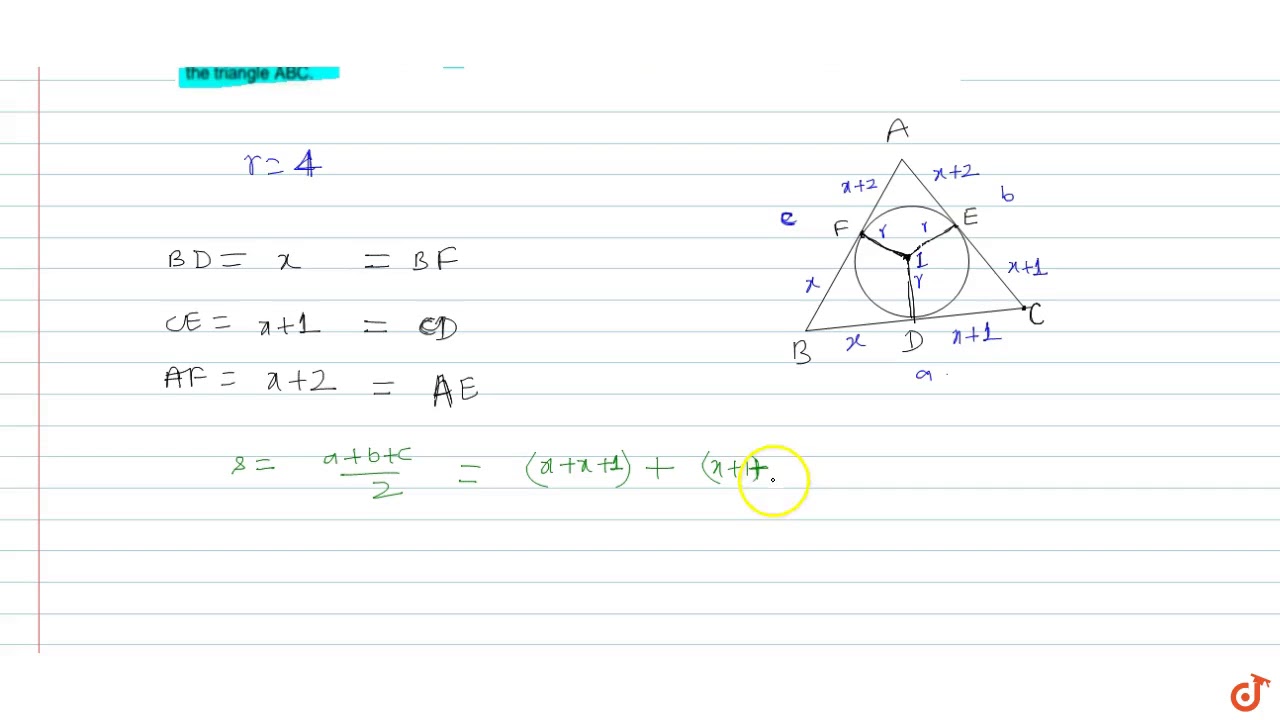 the triangle ABC.
r = 4
BD = x = BF
CE = x+1 = CD
AF = x+2 = AE
s = a+b+c / 2 = (x+x+1) + (x+1+
A
x+2 x+2
b
c
F r r E
I
x r x+1
C
B x D x+1
a